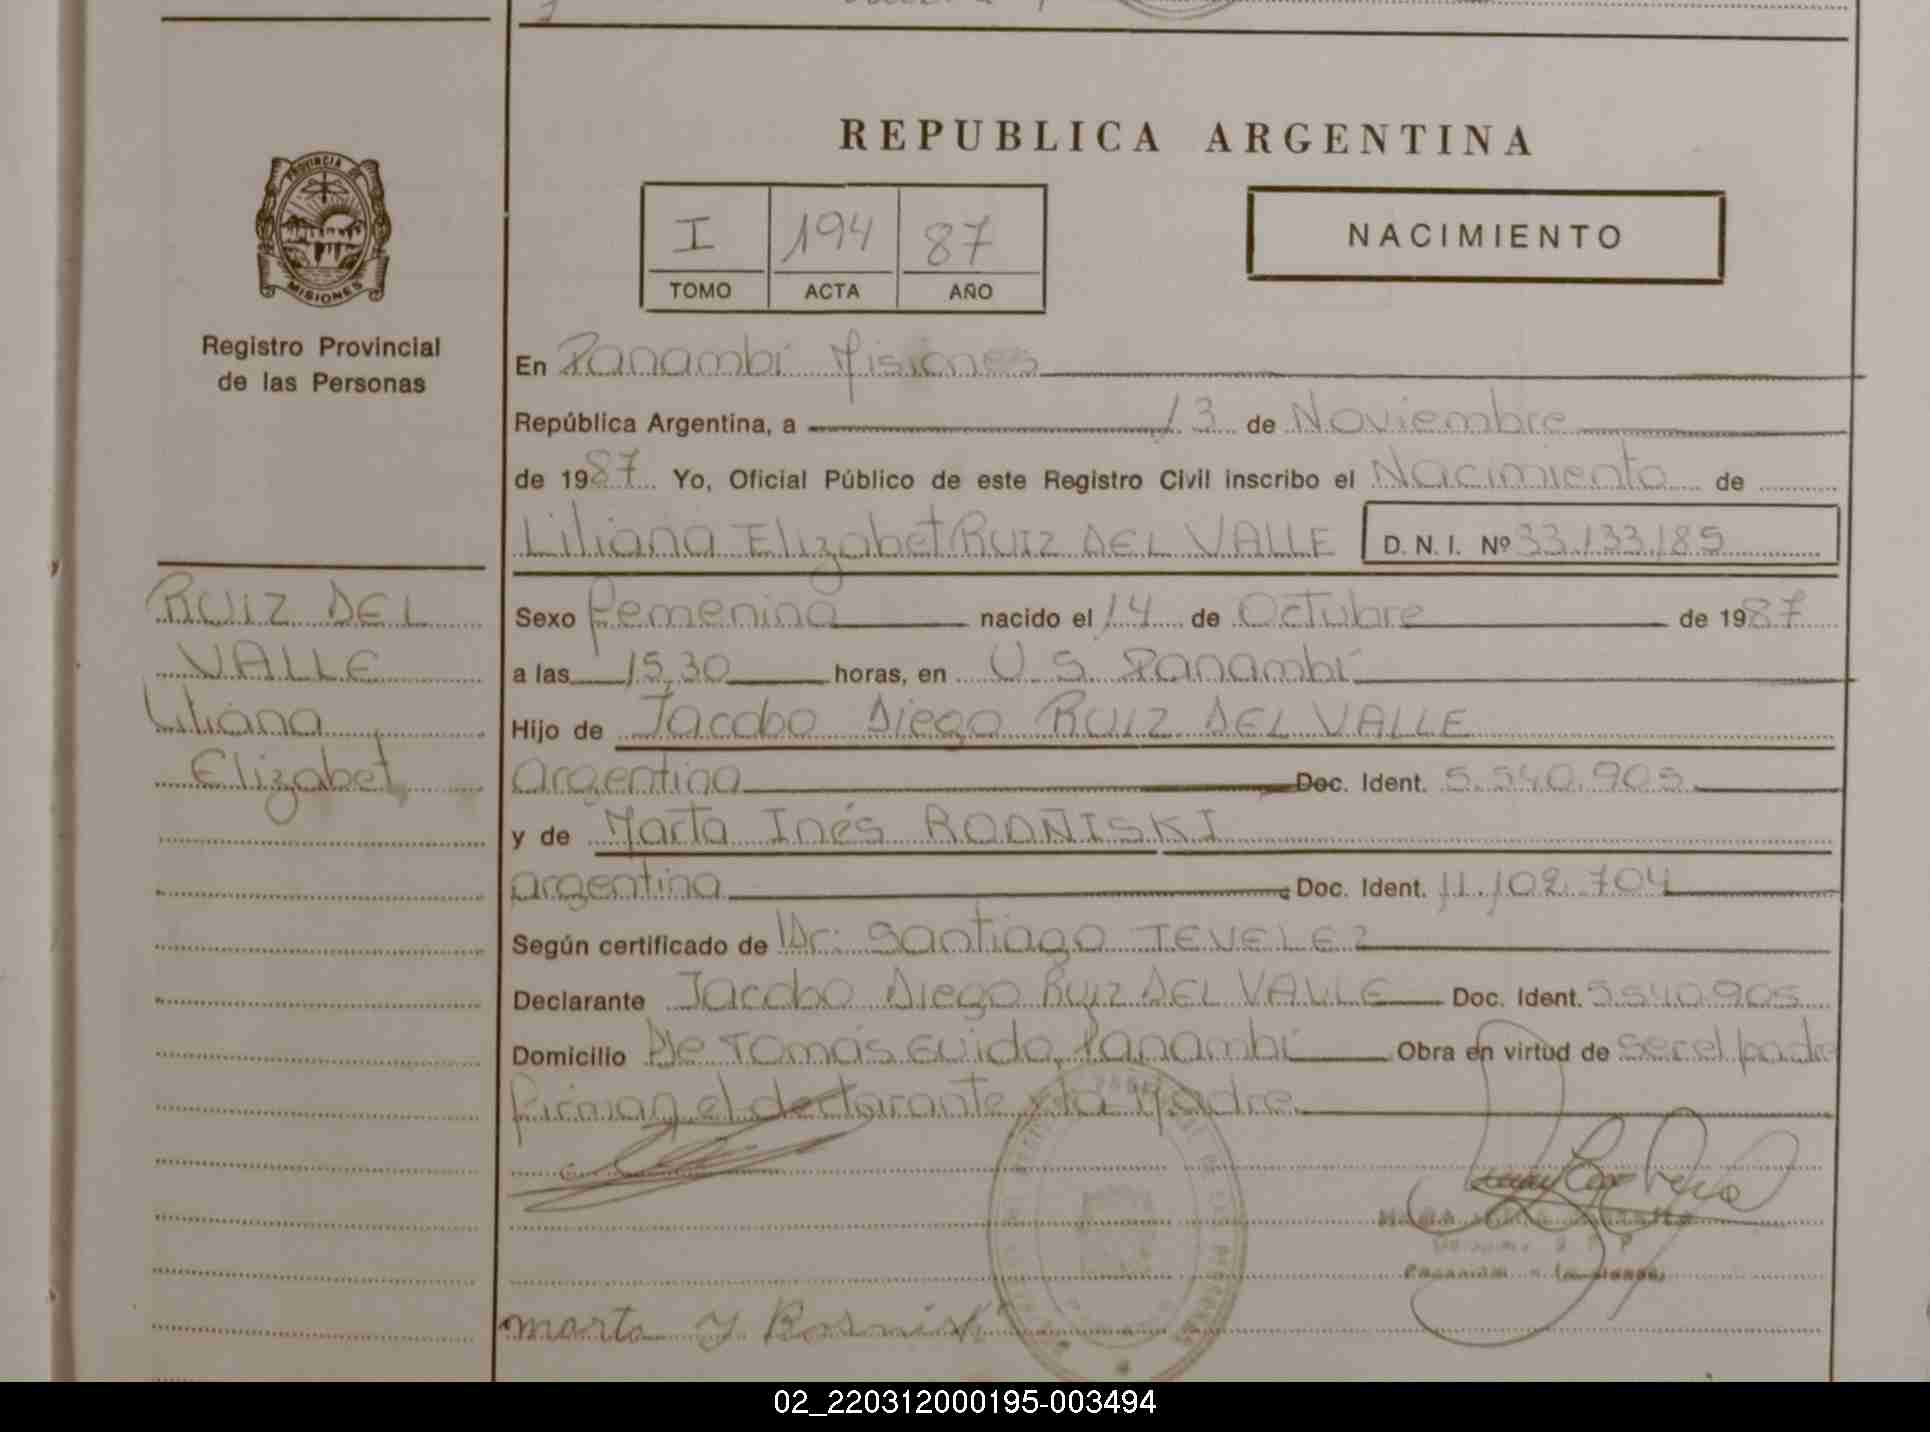 REPUBLICA ARGENTINA
PROVINCIA DE
MISIONES
Registro Provincial
de las Personas
I 194 87
TOMO ACTA AÑO
NACIMIENTO
En Panambí Misiones
República Argentina, a 13 de Noviembre
de 1987 Yo, Oficial Público de este Registro Civil inscribo el Nacimiento de
Liliana Elizabet RUIZ DEL VALLE D. N. I. Nº 33.133.185
RUIZ DEL
VALLE
Liliana
Elizabet
Sexo femenino nacido el 14 de Octubre de 1987
a las 15,30 horas, en U.S. Panambí
Hijo de Jacobo Diego RUIZ DEL VALLE
argentina Doc. Ident. 5.540.905
y de Marta Inés RODÑISKI
argentina Doc. Ident. 11.102.704
Según certificado de Dr: Santiago TEVELEZ
Declarante Jacobo Diego Ruiz DEL VALLE Doc. Ident. 5.540.905
Domicilio De Tomás Guido, Panambí Obra en virtud de ser el padre
firman el declarante y la Madre.
marta Y
02_220312000195-003494